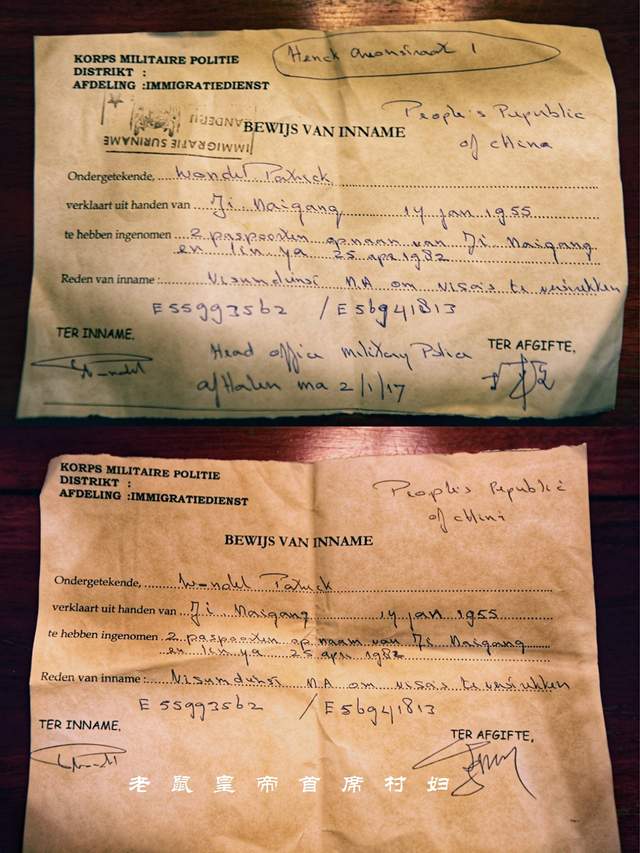 KORPS MILITAIRE POLITIE
DISTRIKT :
AFDELING :IMMIGRATIEDIENST
Henck Aronstraat 1
IMMIGRATIE SURINAME
ZANDERIJ
People's Republic
of china
BEWIJS VAN INNAME
Ondergetekende, Wondel Patrick
verklaart uit handen van Ji Naigang 14 jan 1955
te hebben ingenomen 2 paspoorten op naam van Ji Naigang
en lin ya 25 apr 1982
Reden van inname: NA om visa's te
E55993562 / E56941813
TER INNAME,
TER AFGIFTE,
Head office Military Police
afHalen ma 2/1/17
KORPS MILITAIRE POLITIE
DISTRIKT :
AFDELING :IMMIGRATIEDIENST
People's Republic
of china
BEWIJS VAN INNAME
Ondergetekende, Wondel Patrick
verklaart uit handen van Ji Naigang 14 jan 1955
te hebben ingenomen 2 paspoorten op naam van Ji Naigang
en lin ya 25 apr 1982
Reden van inname: NA om visa's te
E55993562 / E56941813
TER INNAME,
TER AFGIFTE,
老鼠皇帝首席村妇